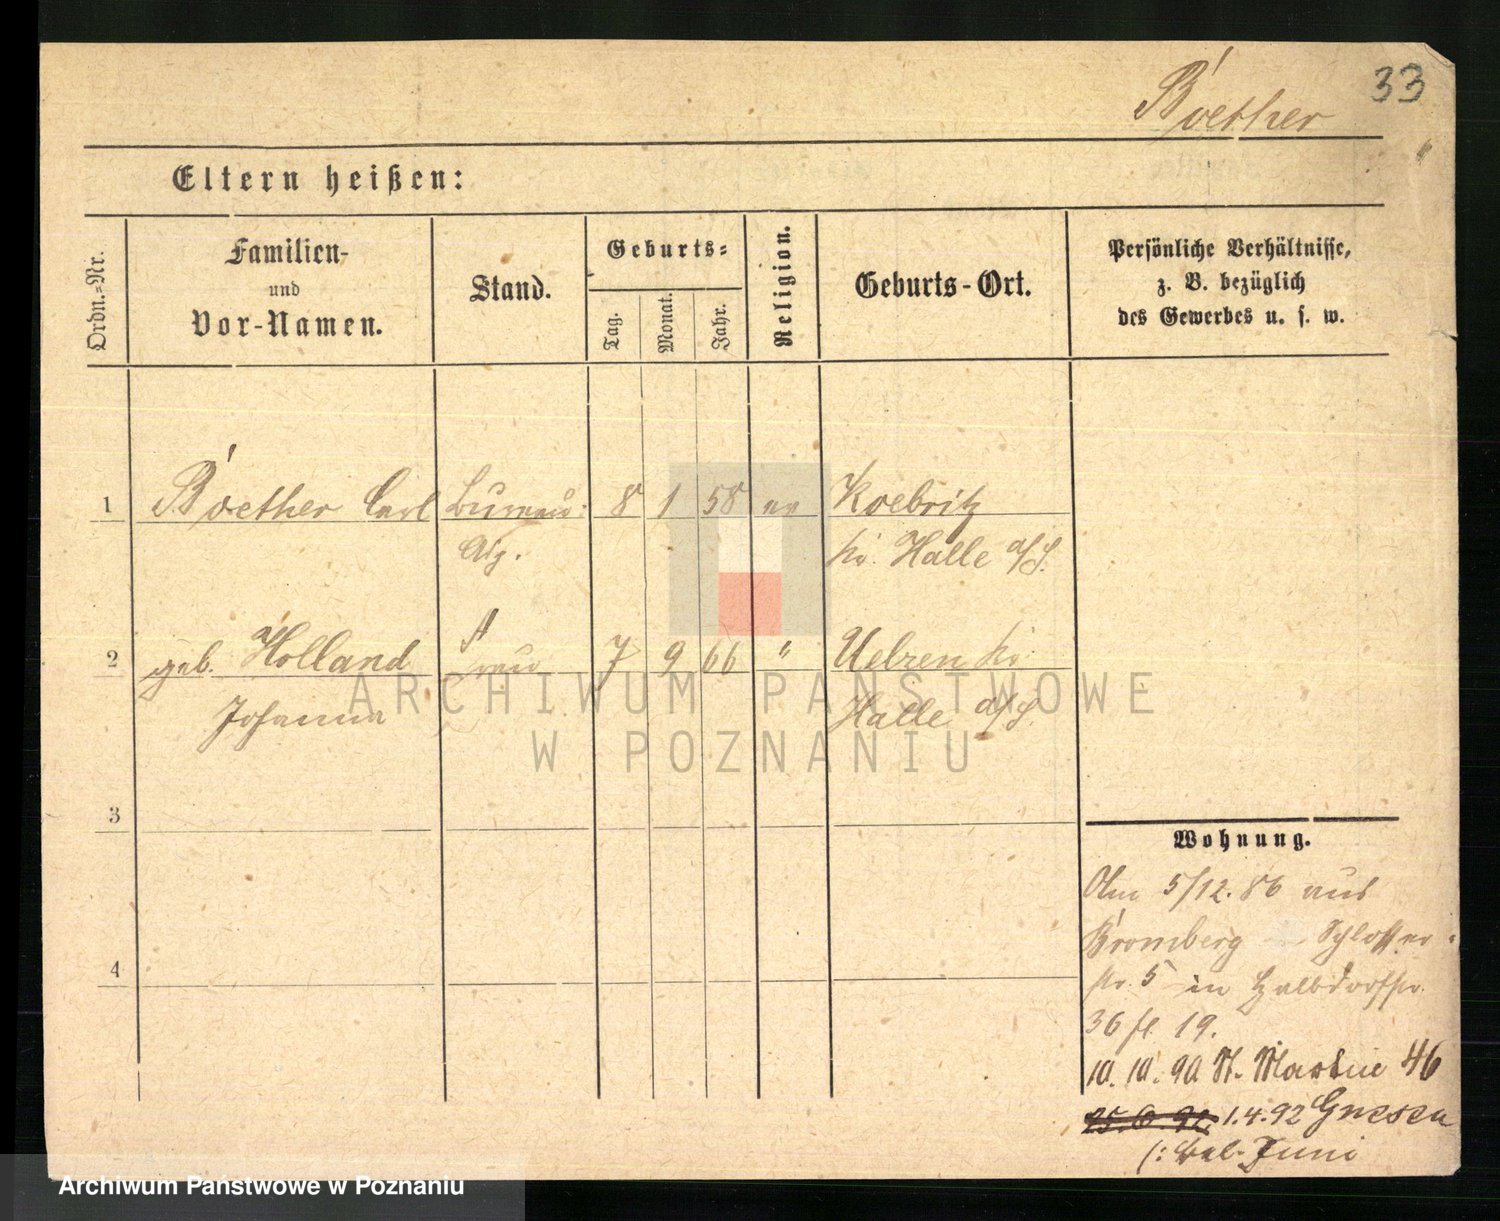 33
Boether
Eltern heißen:
Ordn.-Nr.
Familien-
und
Vor-Namen.
Stand.
Geburts-
Tag.
Monat.
Jahr.
Religion.
Geburts-Ort.
Persönliche Verhältnisse,
z. B. bezüglich
des Gewerbes u. s. w.
1 Boether Carl Bureau- 8 1 58 ev Koebritz
Halle a/S.
2 geb. Holland Frau 7 9 66 " Uelzen
Johanna Halle a/S.
3
4
Wohnung.
5/12. 86 aus
Bromberg Schlosser-
str. 5 in Halbdorfstr.
36 19.
10. 10. 90 St. Martin 46
1.4.92 Gnesen
Juni
ARCHIWUM PAŃSTWOWE
W POZNANIU
Archiwum Państwowe w Poznaniu